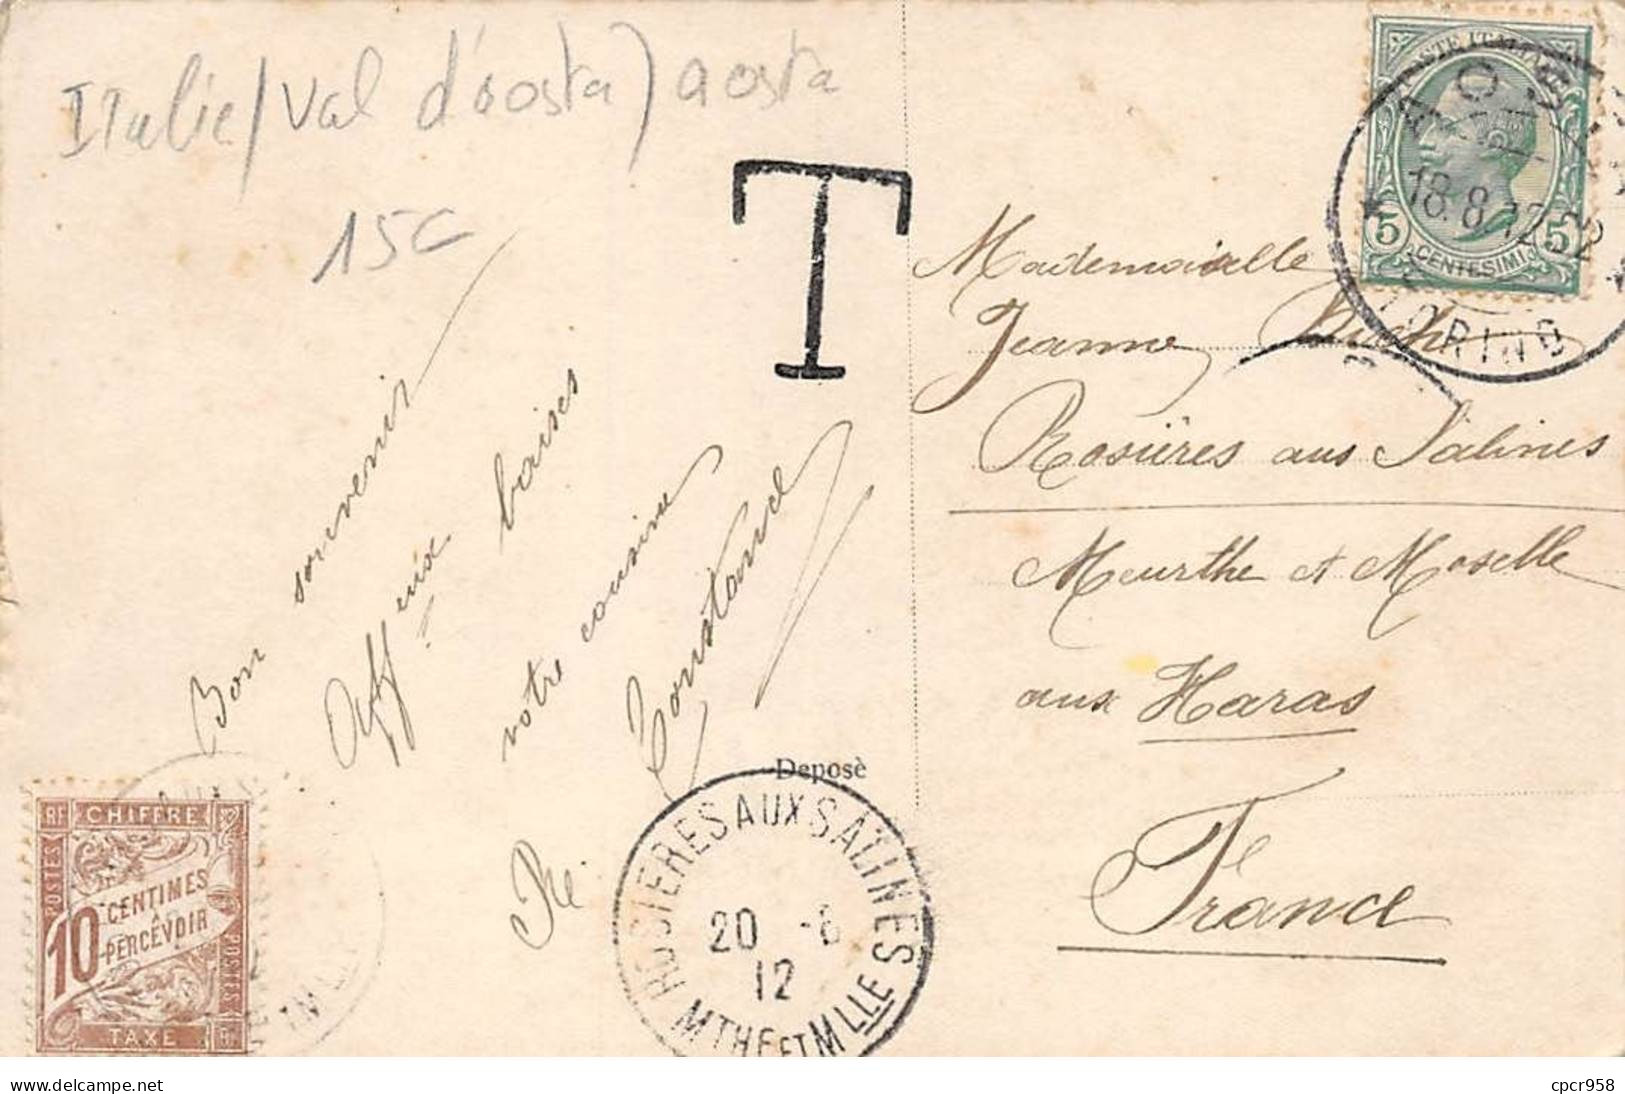 Italie / Val d'áosta) aosta
15C
T
POSTE ITALIANE
5 5
CENTESIMI
AOSTA
18.8.12 S 2
TORINO
Mademoiselle
Jeanne
Rosières aux Salines
Meurthe et Moselle
aux Haras
France
Bon souvenir
Affueux baisers
votre cousine
Constance
Deposè
RF CHIFFRE
POSTES
10 CENTIMES
À
PERCEVOIR
POSTES
TAXE
ROSIERES AUX SALINES
20 -8
12
MTHE ET MLLE
cpcr958